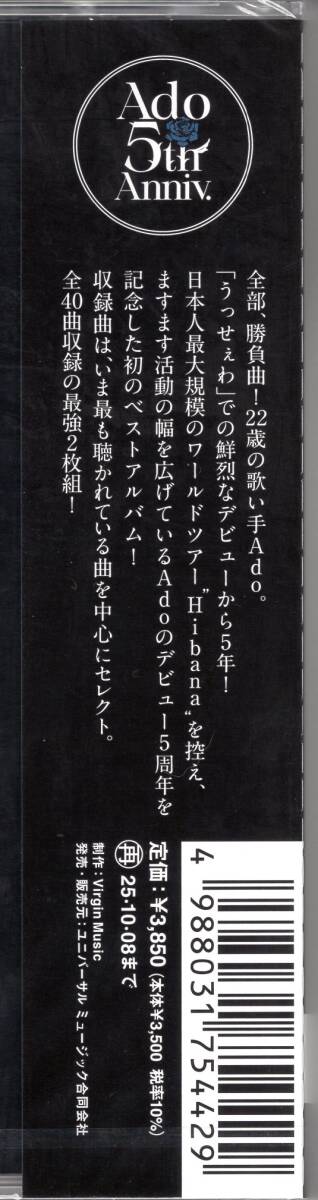 Ado
5th
Anniv.
全部、勝負曲！22歳の歌い手Ado。
「うっせぇわ」での鮮烈なデビューから5年！
日本人最大規模のワールドツアー“Hibana“を控え、
ますます活動の幅を広げているAdoのデビュー5周年を
記念した初のベストアルバム！
収録曲は、いま最も聴かれている曲を中心にセレクト。
全40曲収録の最強2枚組！
定価：¥3,850（本体¥3,500 税率10%）
再 25・10・08まで
制作：Virgin Music
発売・販売元：ユニバーサル ミュージック合同会社
4 988031 754429